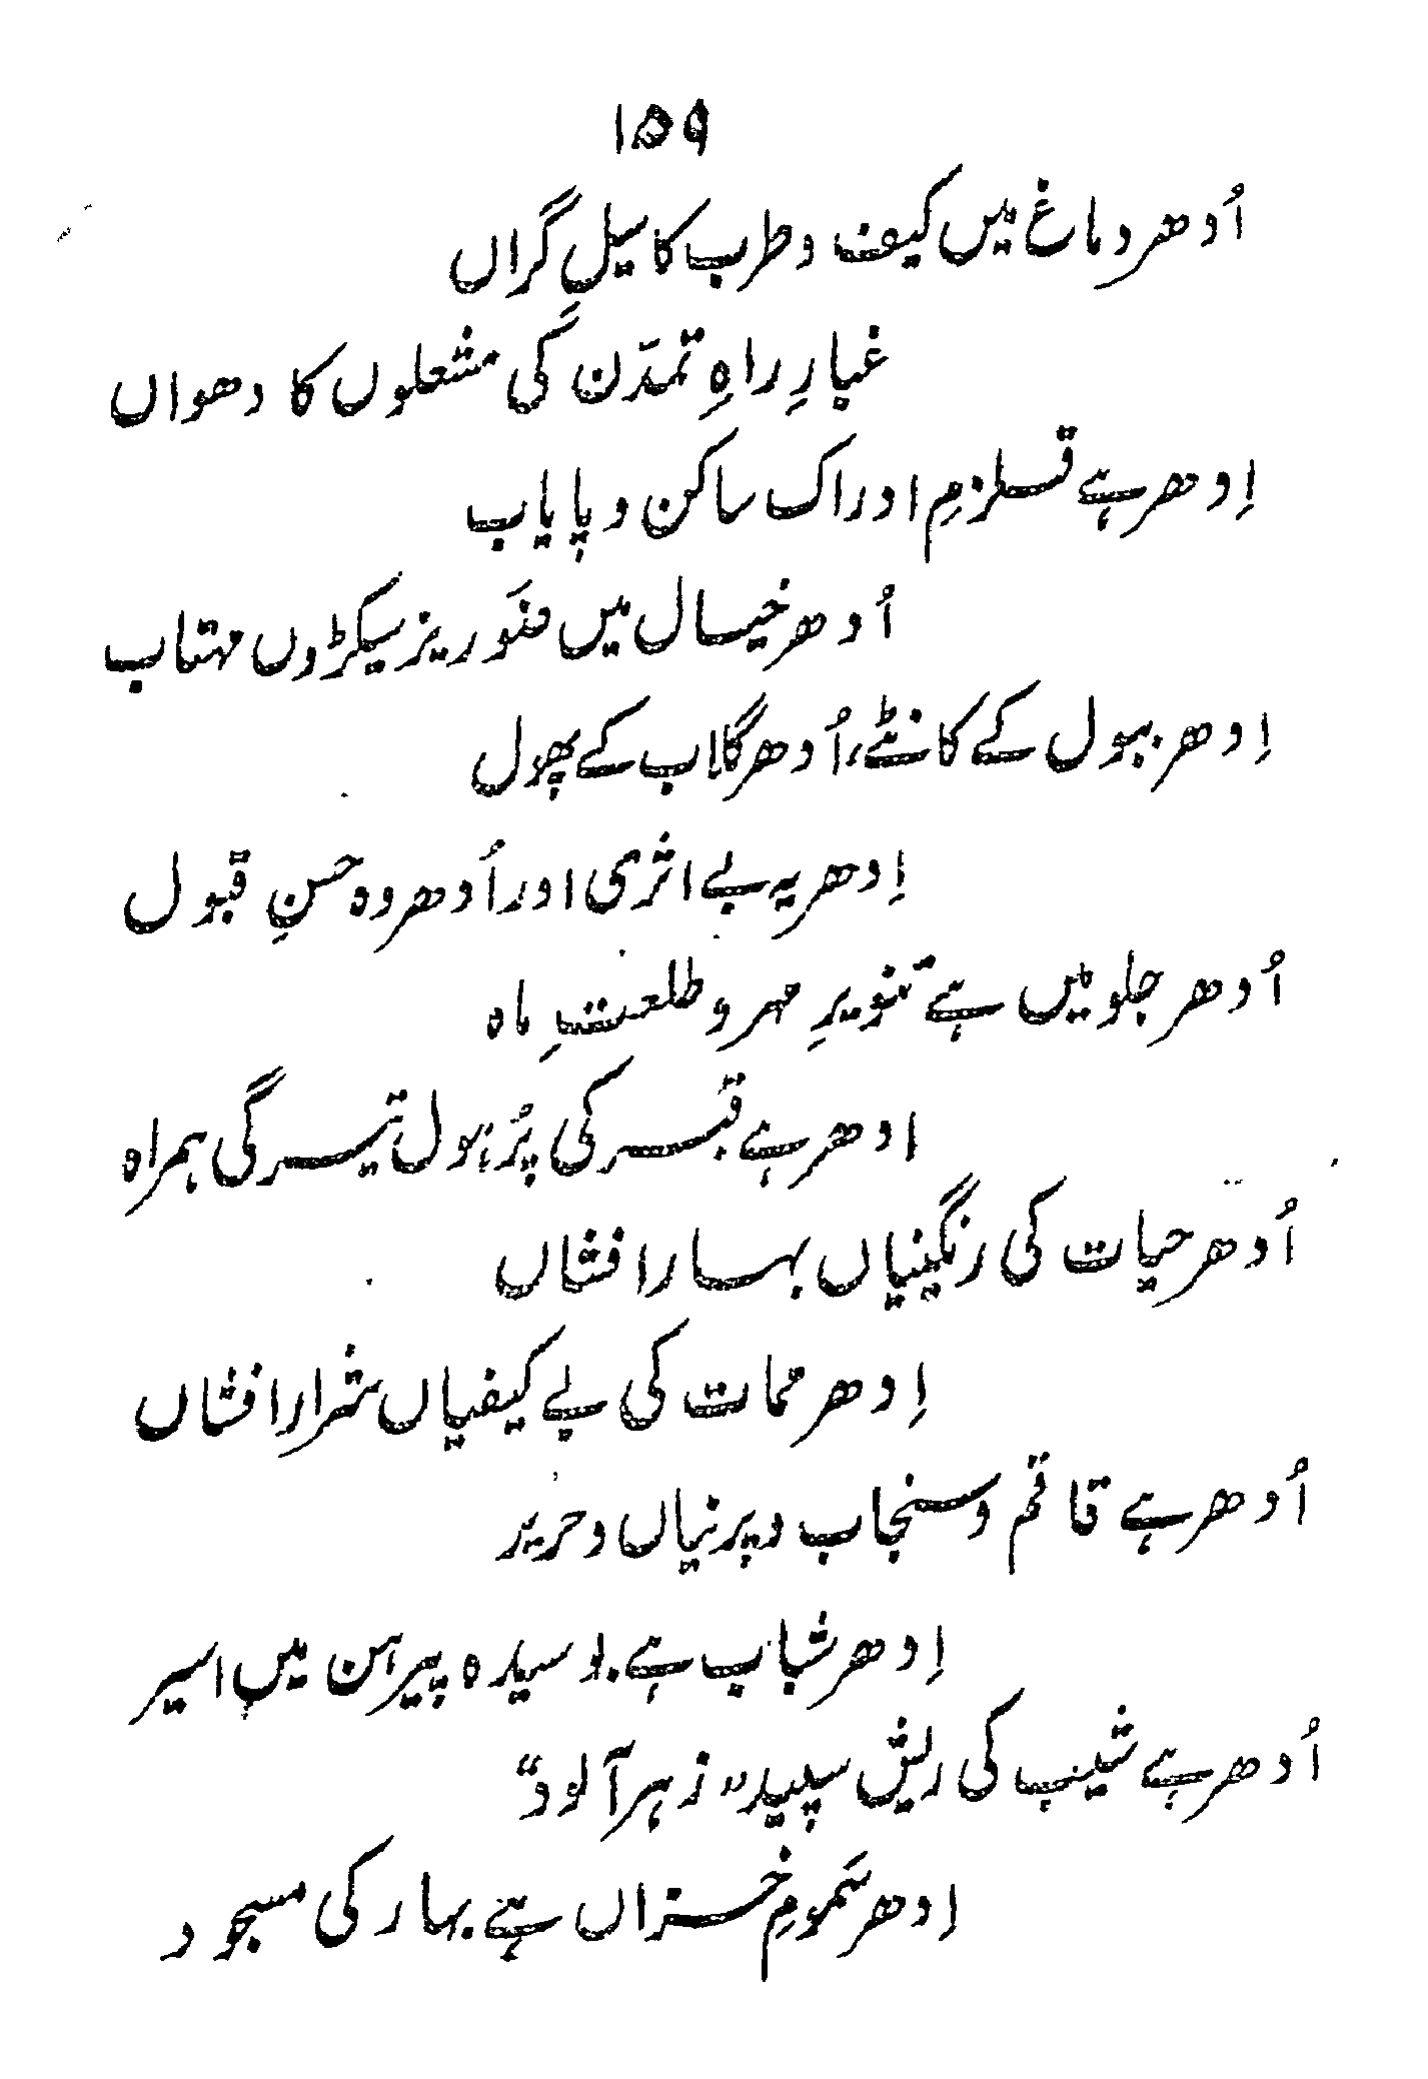 ۱۵۹
اُدھر دماغ میں کیف و طرب کا سیلِ گراں
غبارِ راہِ تمدّن کی مشعلوں کا دھواں
اِدھر ہے قلزمِ ادراک ساکن و پایاب
اُدھر خیال میں ضَو ریز سیکڑوں مہتاب
اِدھر ببول کے کانٹے، اُدھر گلاب کے پھول
اِدھر یہ بے اثری اور اُدھر وہ حسنِ قبول
اُدھر جلو میں ہے تنویرِ مہر و طلعتِ ماہ
ادھر ہے قبر کی پُر ہول تیرگی ہمراہ
اُدھر حیات کی رنگینیاں بہار افشاں
اِدھر ممات کی بے کیفیاں شرار افشاں
اُدھر ہے قاقم و سنجاب و پرنیاں و حریر
اِدھر شباب ہے بوسیدہ پیرہن میں اسیر
اُدھر ہے شیب کی ریش سپید "زہر آلود"
اِدھر سَمومِ خزاں ہے بہار کی مسجود